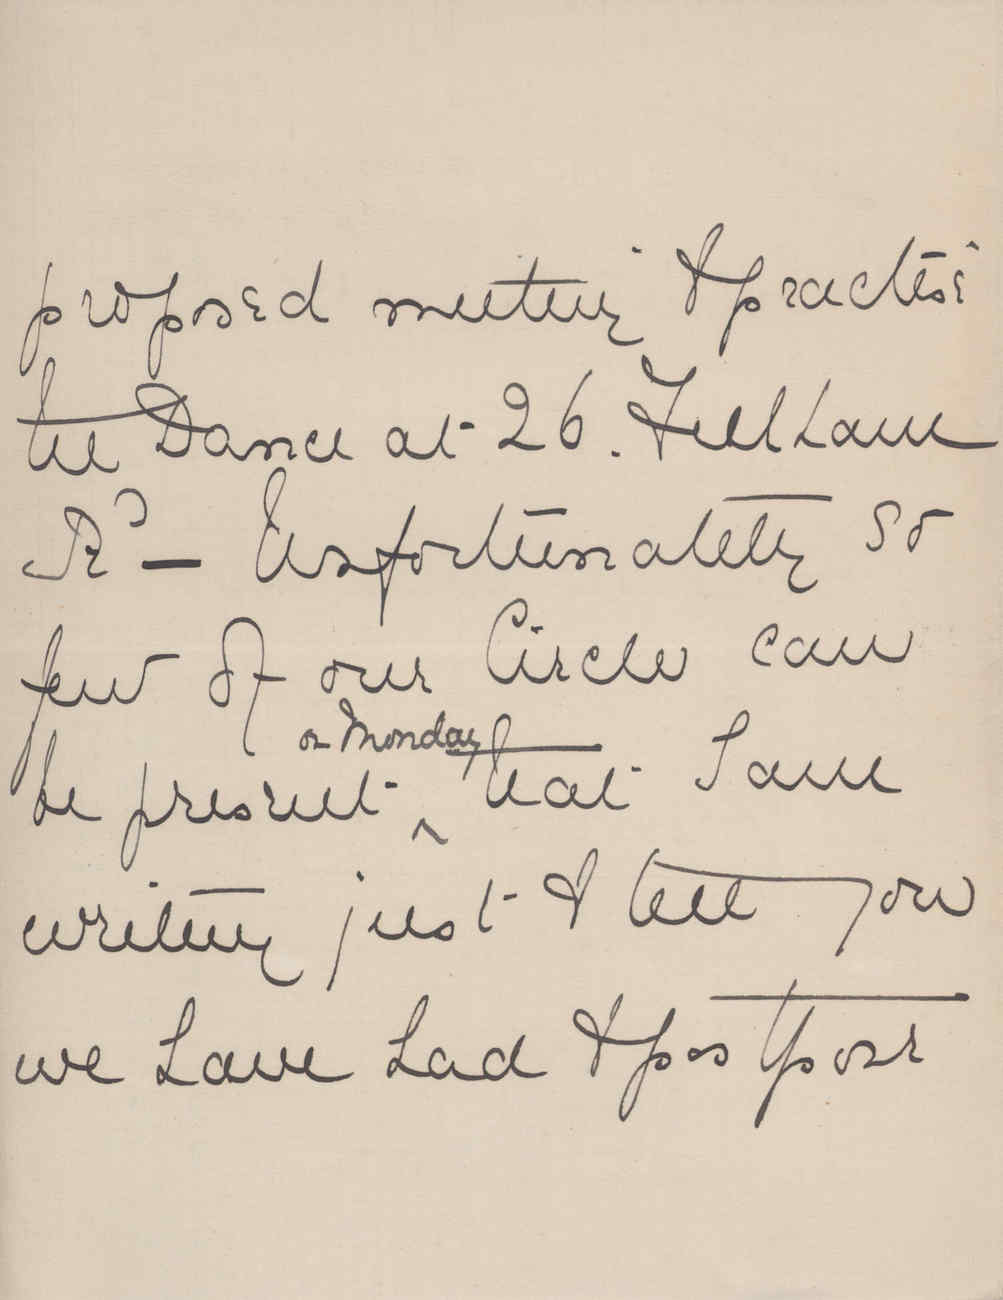 proposed meeting to practise
the Dance at 26.
Rd — Unfortunately so
few of our Circle can
on Monday
be present ^ that I am
writing just to tell you
we have had to postpone